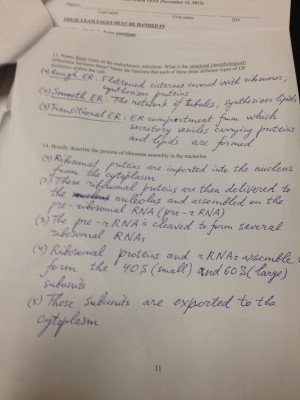 TEST (November 12, 2013)
Last name
First name
ID#
THESE EXAM PAGES MUST BE HANDED IN
13. Name three types of the endoplasmic reticulum. What is the structural (morphological)
difference between them? Name the function that each of these three different types of ER
performs within the cell.
(1) Rough ER: Flattened cisternae covered with ribosomes,
synthesizes proteins
(2) Smooth ER: The network of tubules, synthesizes lipids
(3) Transitional ER: ER compartment from which
secretory vesicles carrying proteins
and lipids are formed
14. Briefly describe the process of ribosome assembly in the nucleolus.
(1) Ribosomal proteins are imported into the nucleus
from the cytoplasm
(2) These ribosomal proteins are then delivered to
the nucleolus and assembled on the
pre-ribosomal RNA (pre-rRNA)
(3) The pre-rRNA is cleaved to form several
ribosomal RNAs
(4) Ribosomal proteins and rRNAs assemble
form the 40S (small) and 60S (large)
subunits
(5) These subunits are exported to the
cytoplasm
11